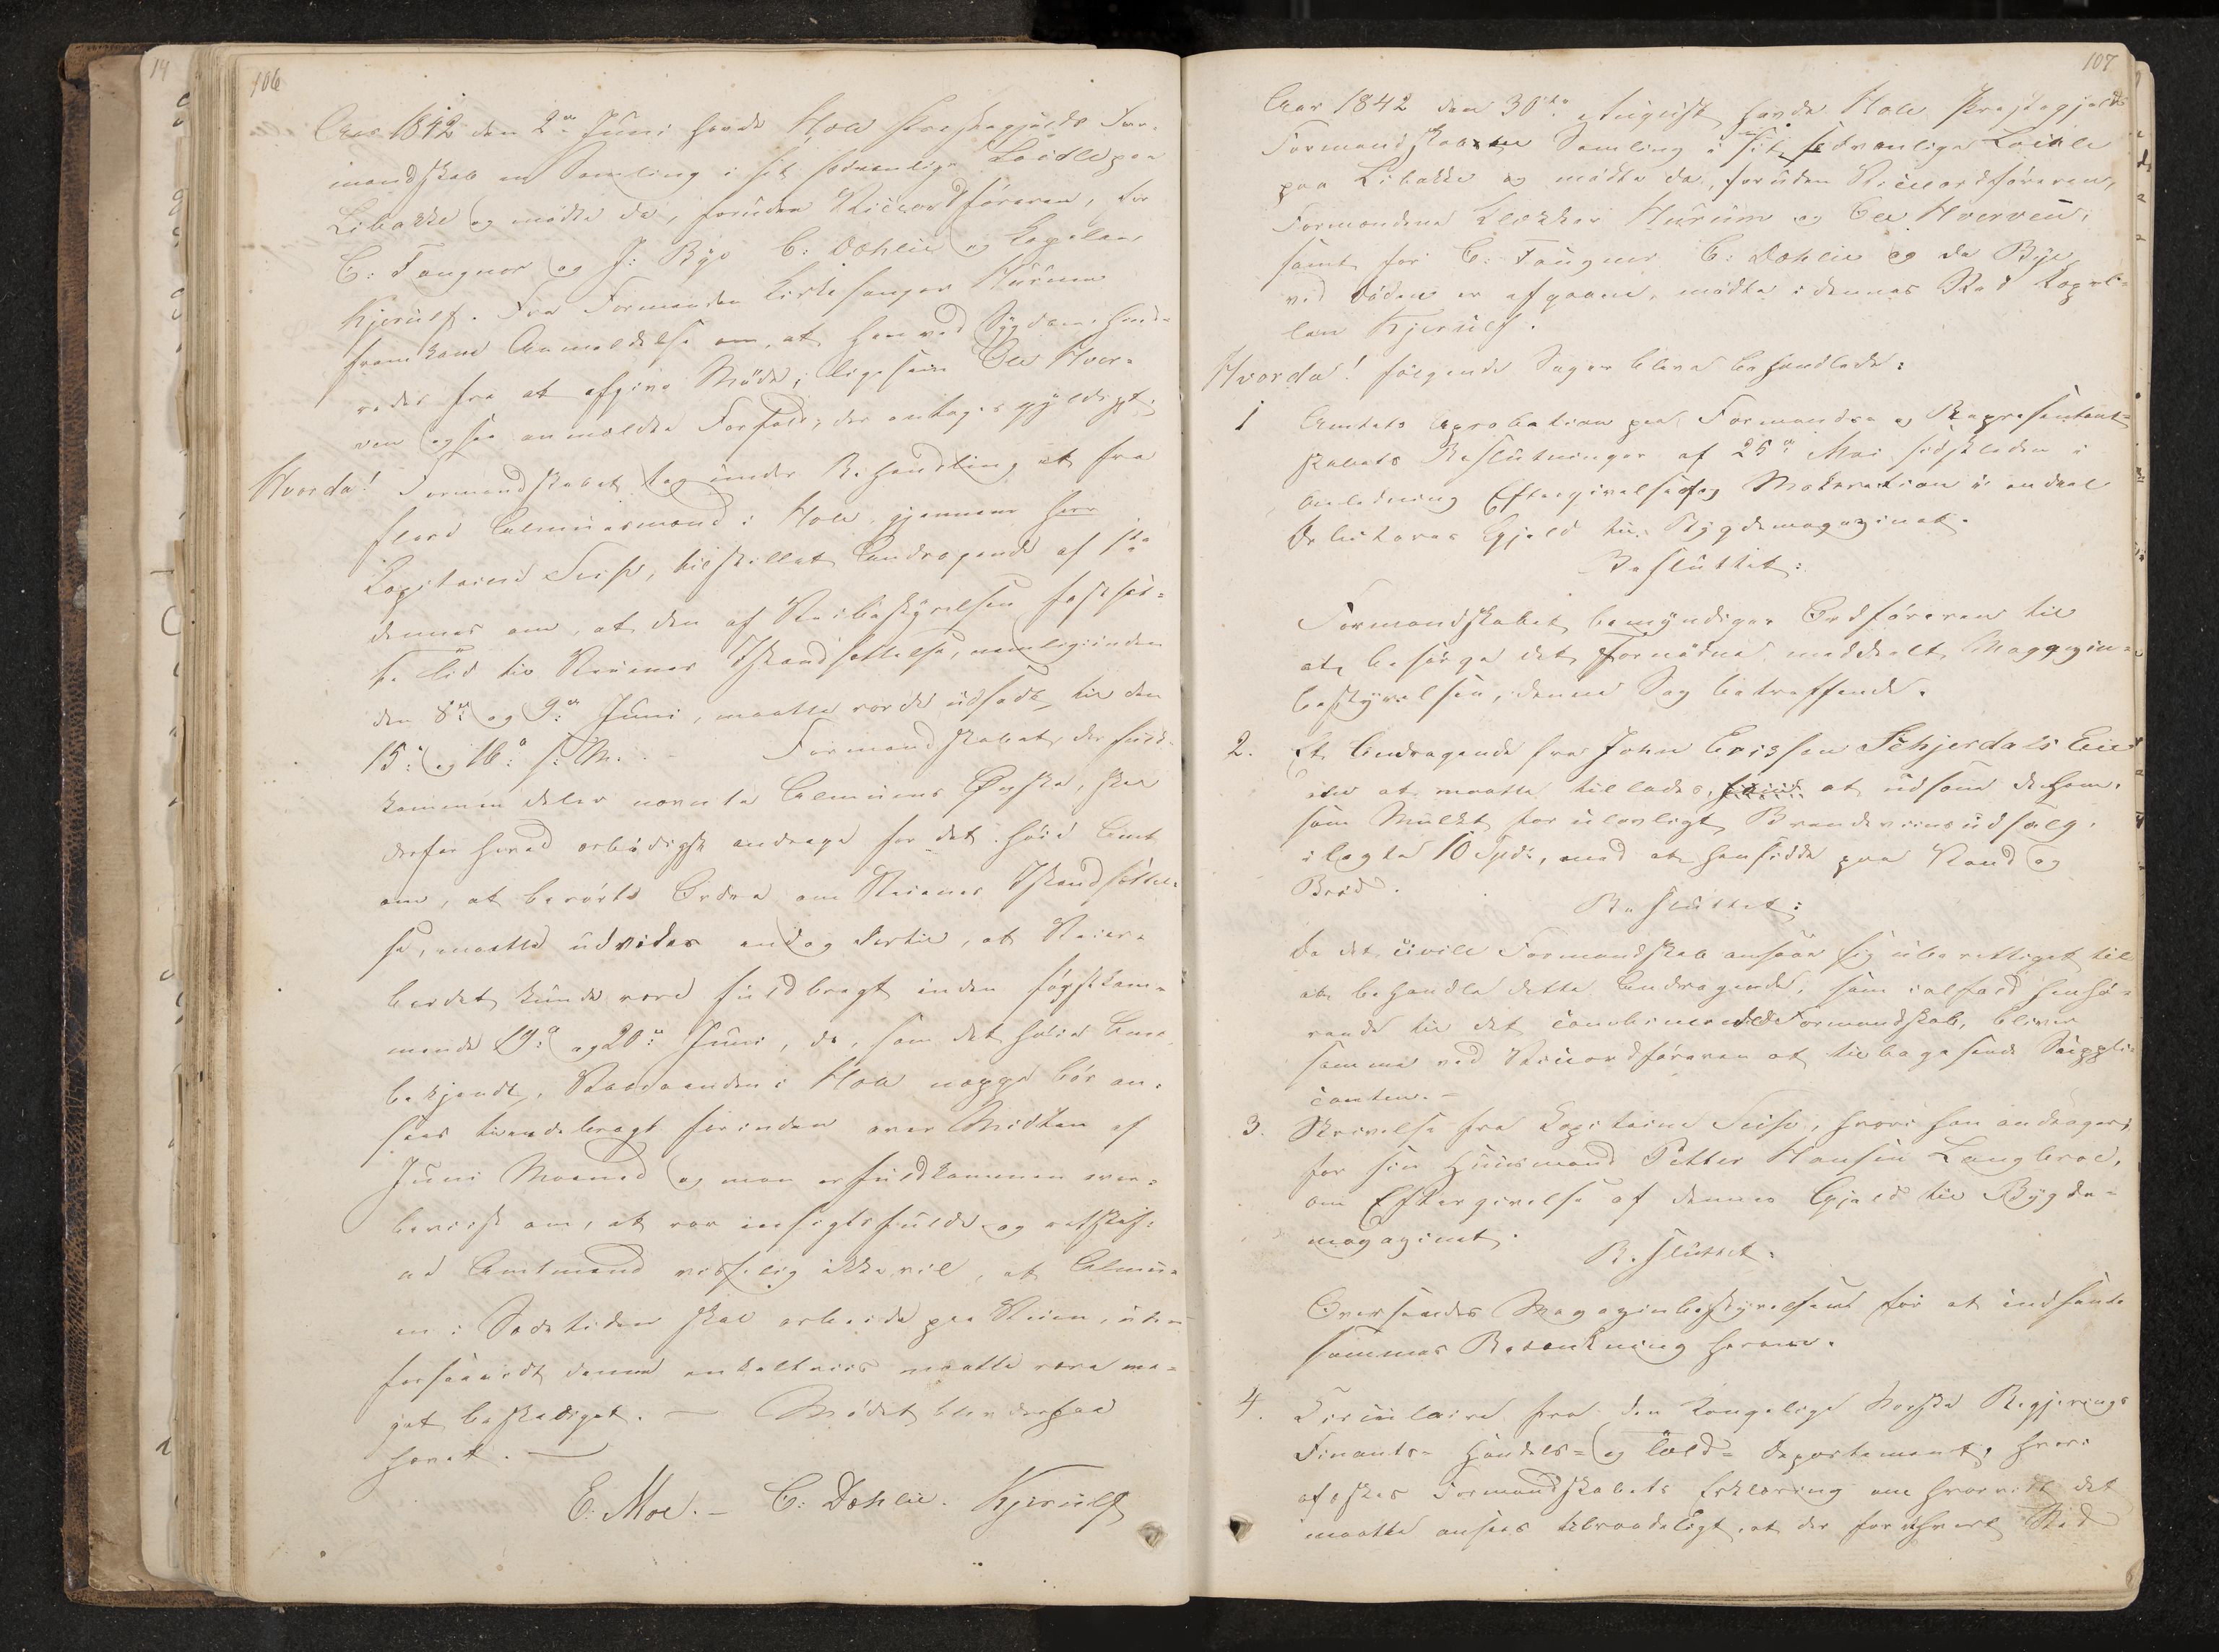 14
106
Aar 1842 den 2n Juni havde Hole Præstegjelds For-
mandskab en Samling i sit sædvanlige Locale paa
Libakke og mødte da, foruden Viceordføreren, for
C: Fougner og J: Bye C: Dæhlie og Kapelan
Kjerulf. Fra Formanden Kirkesanger Hurum
fremkom Anmeldelse om, at han ved Sygdom hind-
redes fra at afgive Møde; ligesom Ole Hver-
ven ogsaa anmeldte Forfald, der antages gyldigt.
Hvorda! Formandskabet tog under Behandling et fra
fleed Almuesmænd i Hole, gjennem Herr
Kapitaine Seip, tilstillet Andragende af 1ste
dennes om, at den af Veibestyrelsen fastsat-
te Tid til Veienes Istandsættelse, nemlig inden
den 8de og 9de Juni, maatte vorde udsadt til den
15: og 16: s: M. - Formandskabet, der fuld-
kommen deler nævnte Almues Ønske, skal
derfor herved ærbødigst andrage for det høie Amt
om, at berørte Ordre om Veienes Istandsættel-
se, maatte udvides endog dertil, at Veiar-
beidet kunde være fuldbragt inden førstkom-
mende 19: og 20: Juni, da, som det høie Amt
bekjendt, Vaaraanden i Hole neppe bør an-
sees tilendebragt førinden over Midten af
Juni Maaned og man er fuldkommen over-
beviist om, at vor indsigtsfulde og retskaf-
ne Amtmand visselig ikke vil, at Almu-
en i Sædetiden skal arbeide paa Veien, uden
forsaavidt denne enkeltviis maatte være me-
get beskadiget. — Mødet blev derpaa
hævet. —
E. Moe. - C: Dæhlie. Kjerulf
107
Aar 1842 den 30te August havde Hole Præstegjelds
Formandskab en Samling i sit sædvanlige Locale
paa Libakke og mødte da, foruden Viceordføreren,
Formændene Klokker Hurum og Ole Hverven,
samt for C: Fougner C: Dæhlie og da Bye
ved Døden er afgaaen, mødte i dennes Sted Kapel-
lan Kjerulf.
Hvorda! følgende Sager bleve behandlede:
1 Amtets Aprobation paa Formænds og Repræsentant-
skabets Beslutninger af 25n Mai sidstleden i
Anledning Eftergivelse og Moderation i endeel
Debitorers Gjeld til Bygdemagazinet.
Besluttet:
Formandskabet bemyndiger Ordføreren til
at besørge det Fornødne meddeelt Maggazin-
bestyrelsen, denne Sag betreffende.
2. Et Andragende fra John Erissen Schjerdals Eie
om at maatte tillades, at udsone de ham
som Mulkt for ulovligt Brændeviinsudsalg
ilagte 10 Spd:, med at hensidde paa Vand og
Brød.
Besluttet:
Da det civile Formandskab anseer sig uberettiget til
at behandle dette Andragende, som ialfald henhø-
rende til det combinerede Formandskab, bliver
samme ved Viceordføreren at tilbagesende Suppli-
canten. -
3. Skrivelse fra Kapitaine Seip, hvori han andrager
for sin Huusmand Petter Hansen Langbroe,
om Eftergivelse af dennes Gjeld til Bygde-
magazinet.
Besluttet:
Oversendes Magazinbestyrelsen for at indhente
sammes Betænkning herom.
4. Circulaire fra den Kongelige Norske Regjerings
Finants- Handels- og Told- Departement, hvori
afæskes Formandskabets Erklæring om hvorvidt det
maatte ansees tilraadeligt, at der for ethvert Sted